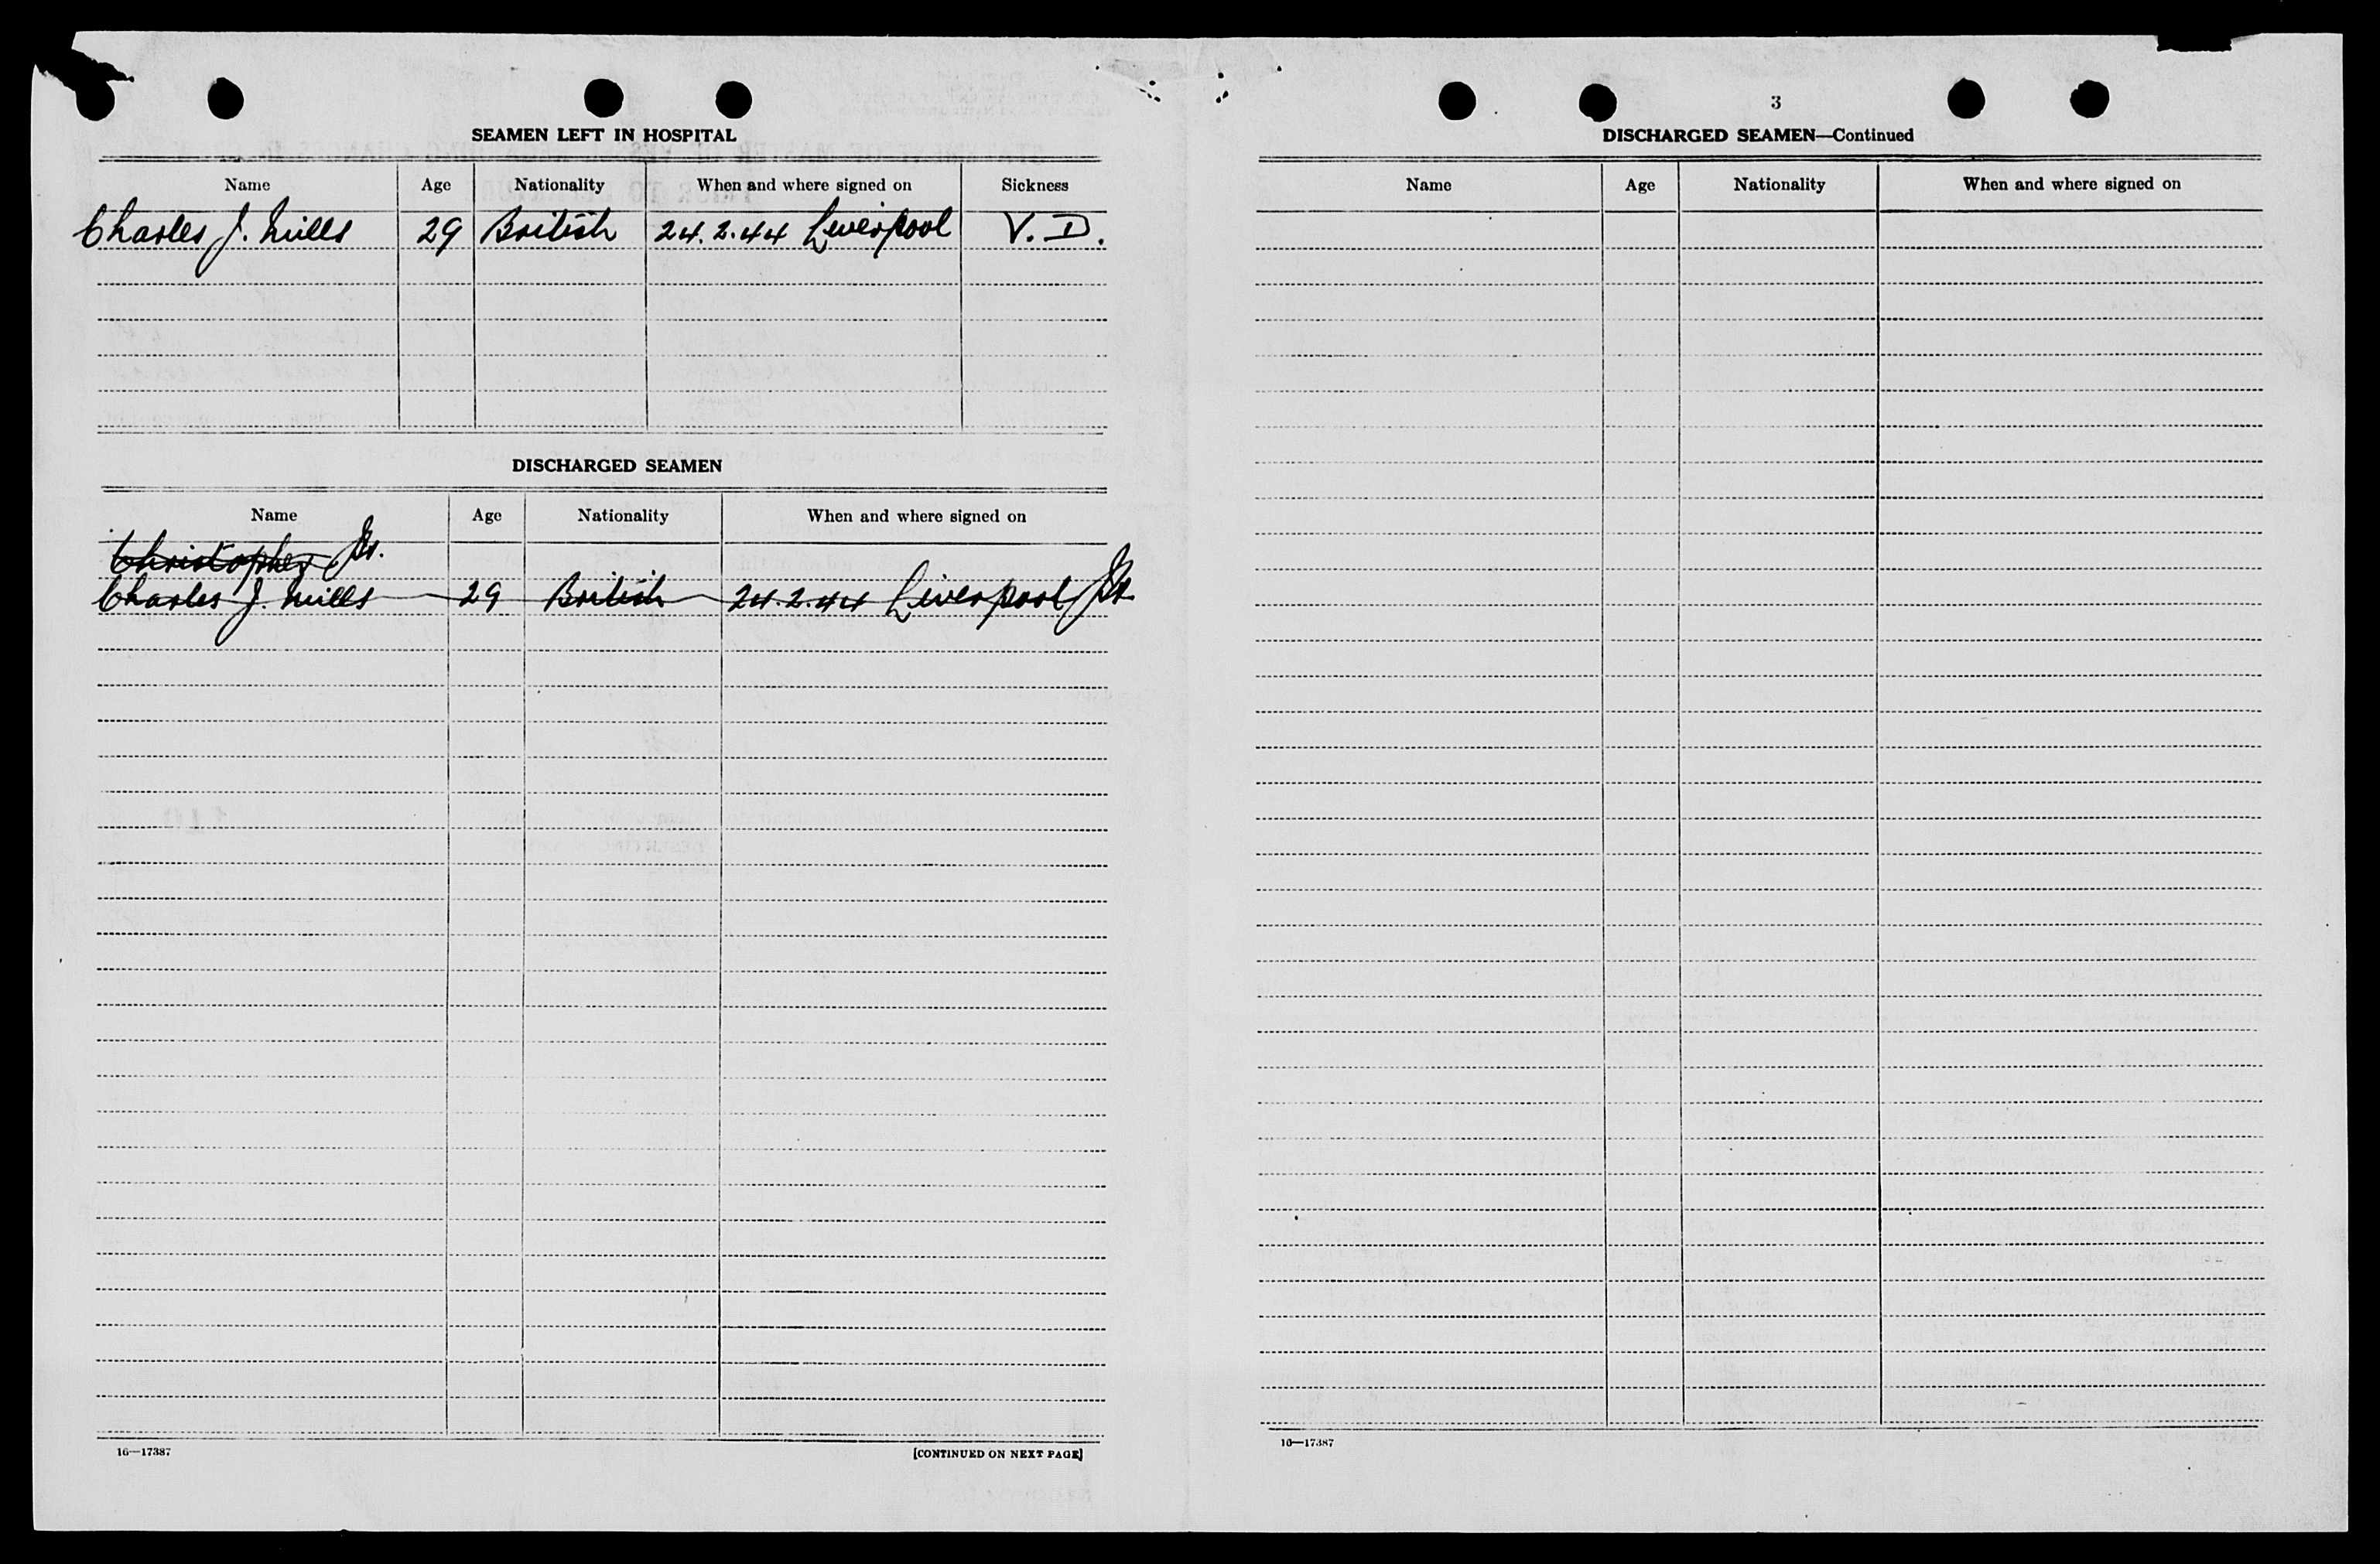 SEAMEN LEFT IN HOSPITAL
Name Age Nationality When and where signed on Sickness
Charles J. Mills 29 British 24.2.44 Liverpool V.D.
DISCHARGED SEAMEN
Name Age Nationality When and where signed on
Christopher
Charles J. Mills 29 British 24.2.44 Liverpool
16—17387
[CONTINUED ON NEXT PAGE]
3
DISCHARGED SEAMEN—Continued
Name Age Nationality When and where signed on
16—17387